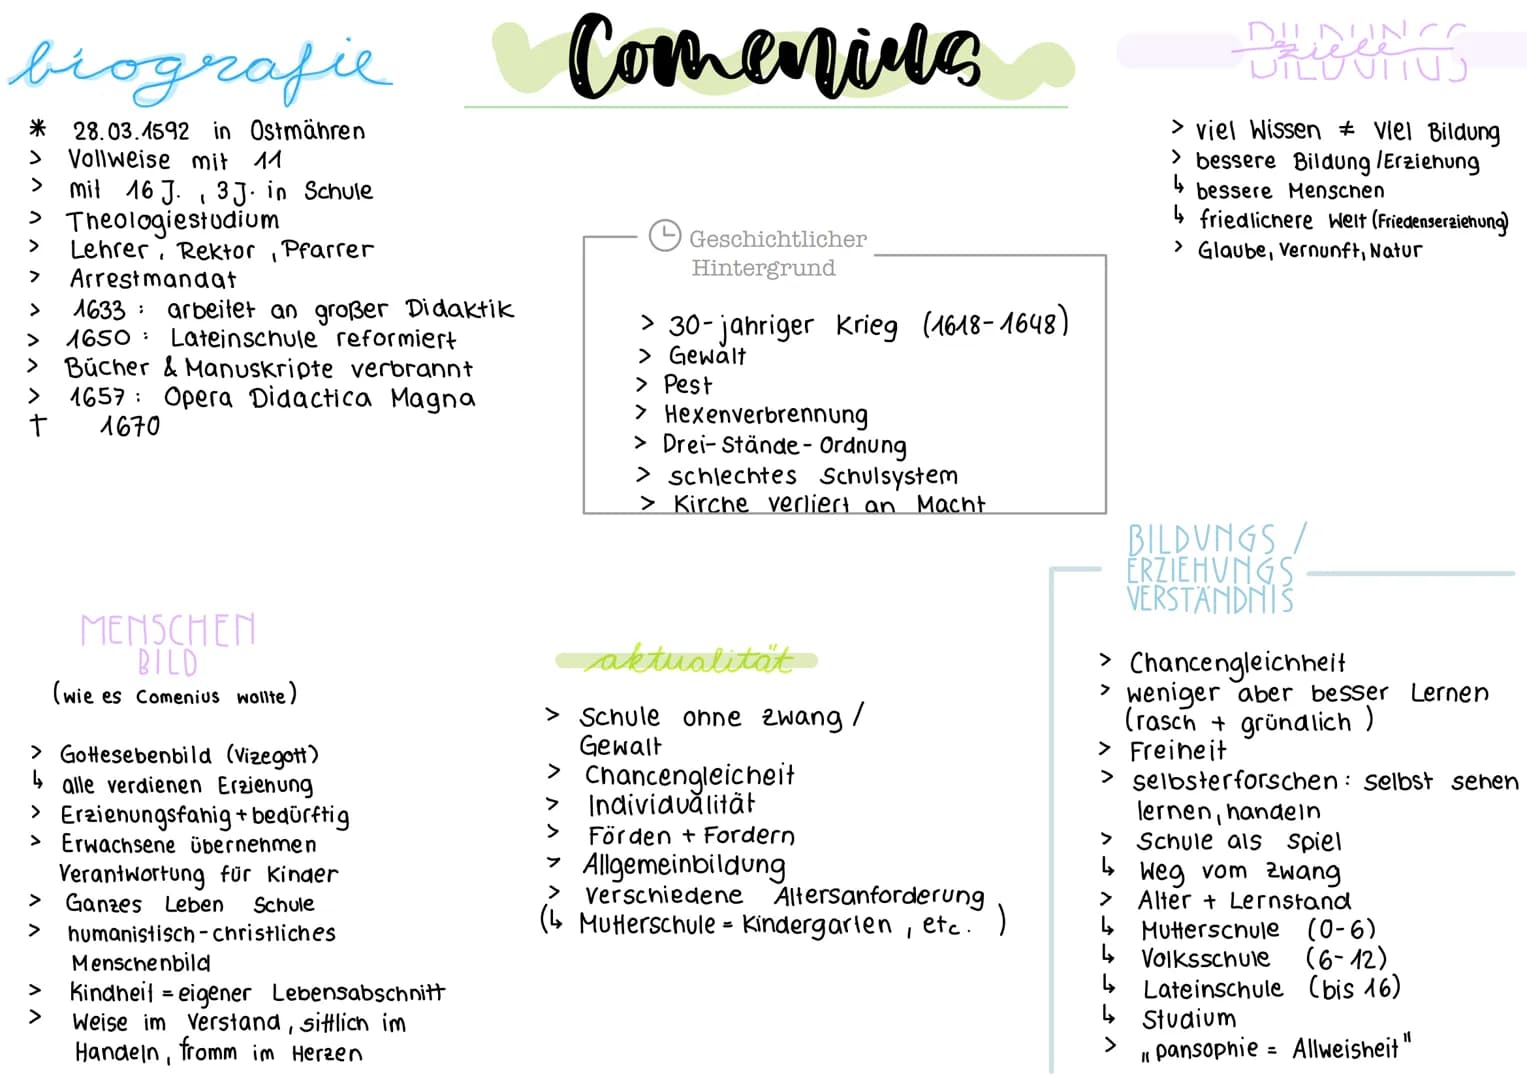 Comenius
biografie
* 28.03.1592 in Ostmähren
> Vollweise mit 11
> mit 16 J., 3 J. in Schule
> Theologiestudium
> Lehrer, Rektor, Pfarrer
> Arrestmandat
> 1633: arbeitet an großer Didaktik
> 1650: Lateinschule reformiert
> Bücher & Manuskripte verbrannt
> 1657: Opera Didactica Magna
† 1670
Geschichtlicher
Hintergrund
> 30-jahriger Krieg (1618-1648)
> Gewalt
> Pest
> Hexenverbrennung
> Drei-Stände-Ordnung
> schlechtes Schulsystem
> Kirche verliert an Macht
BILDUNGS
ziele
> viel Wissen ≠ viel Bildung
> bessere Bildung/Erziehung
↳ bessere Menschen
↳ friedlichere Welt (Friedenserziehung)
> Glaube, Vernunft, Natur
MENSCHEN
BILD
(wie es Comenius wollte)
> Gottesebenbild (Vizegott)
↳ alle verdienen Erziehung
> Erziehungsfahig + bedürftig
> Erwachsene übernehmen
Verantwortung für Kinder
> Ganzes Leben Schule
> humanistisch-christliches
Menschenbild
> Kindheit = eigener Lebensabschnitt
> Weise im Verstand, sittlich im
Handeln, fromm im Herzen
aktualität
> Schule ohne zwang /
Gewalt
> Chancengleicheit
> Individualität
> Förden + Fordern
> Allgemeinbildung
> Verschiedene Altersanforderung
(↳ Mutterschule = Kindergarten, etc. )
BILDUNGS /
ERZIEHUNGS
VERSTÄNDNIS
> Chancengleichheit
> weniger aber besser Lernen
(rasch + gründlich )
> Freiheit
> selbsterforschen: selbst sehen
lernen, handeln
> Schule als Spiel
↳ Weg vom zwang
> Alter + Lernstand
↳ Mutterschule (0-6)
↳ Volksschule (6-12)
↳ Lateinschule (bis 16)
↳ Studium
> „pansophie = Allweisheit"